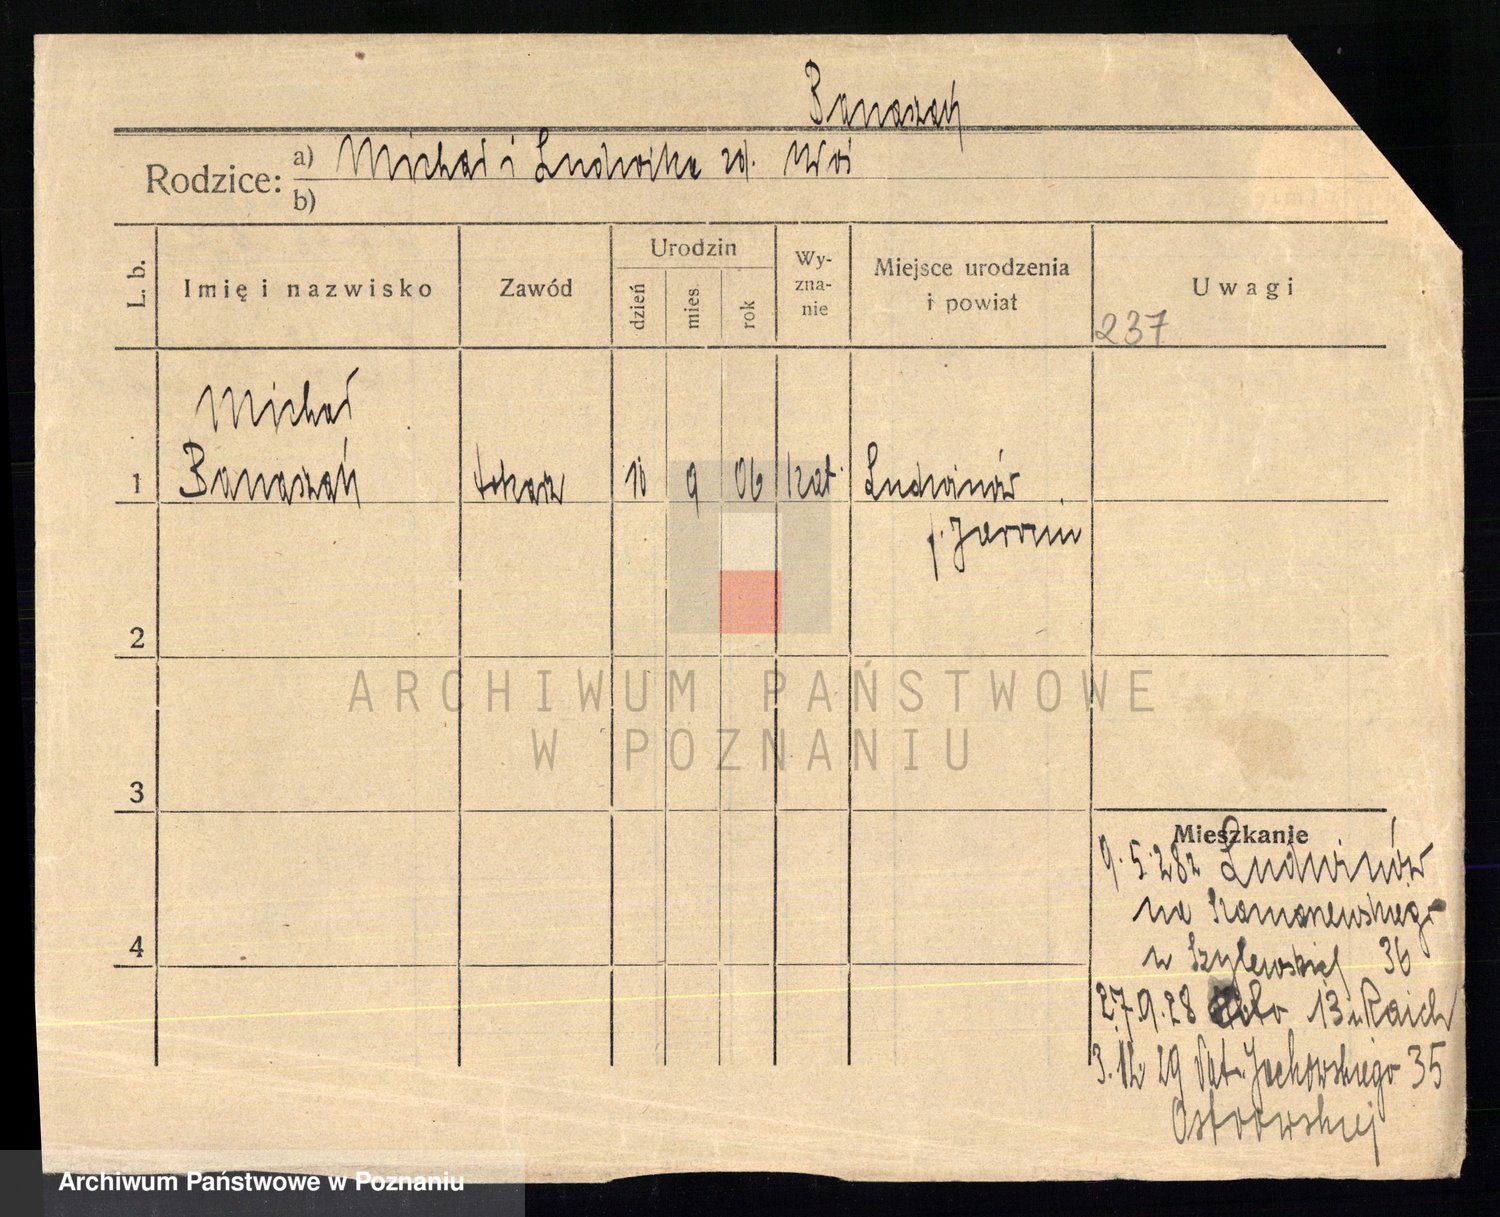 Banaszak
Rodzice:
a) Michał i Ludwika zd. Woś
b)
L. b.
Imię i nazwisko
Zawód
Urodzin
dzień
mies.
rok
Wy-
zna-
nie
Miejsce urodzenia
i powiat
Uwagi
237
Michał
1 Banaszak tokarz 10 9 06 kat. Ludwinów
p. Jarocin
2
3
4
Mieszkanie
9.5.28 z Ludwinów
na
u 36
27.9.28 13 u Rajch
3.12 29 Pat. Jackowskiego 35
Ostrowskiej
ARCHIWUM PAŃSTWOWE
W POZNANIU
Archiwum Państwowe w Poznaniu